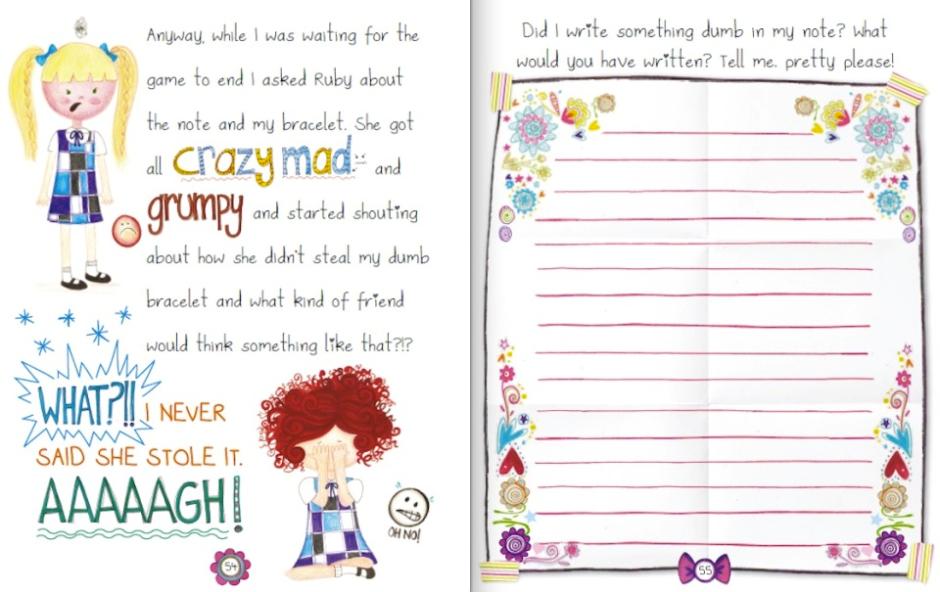 Anyway, while I was waiting for the
game to end I asked Ruby about
the note and my bracelet. She got
all crazy mad and
grumpy and started shouting
about how she didn't steal my dumb
bracelet and what kind of friend
would think something like that?!?
WHAT?!! I NEVER
SAID SHE STOLE IT.
AAAAAGH!
OH NO!
54
Did I write something dumb in my note? What
would you have written? Tell me, pretty please!
55